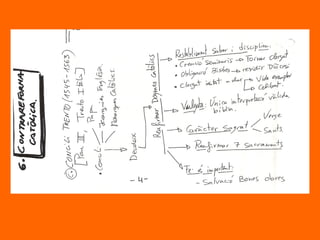 6. CONTRAREFORMA
CATÒLICA.
© CONCILI TRENTO (1545-1563)
[Pau III Trento Itàlia]
• Concili
Papa
Jerarquia Església
Monarques Catòlics.
Decideix
Reafirmar Dogmes Catòlics
→ Restabliment saber i disciplina.
• Creació seminaris → Formar clergat
• Obligació Bisbes → residir Diòcesi
• Clergat → Vida exemplar
→ Celibat.
→ Vulgata: Única interpretació vàlida
bíblia.
→ Caràcter Sagrat
Verge
Sants
→ Reafirmar 7 Sagraments
→ Fe és important:
- Salvació Bones obres
- 4 -